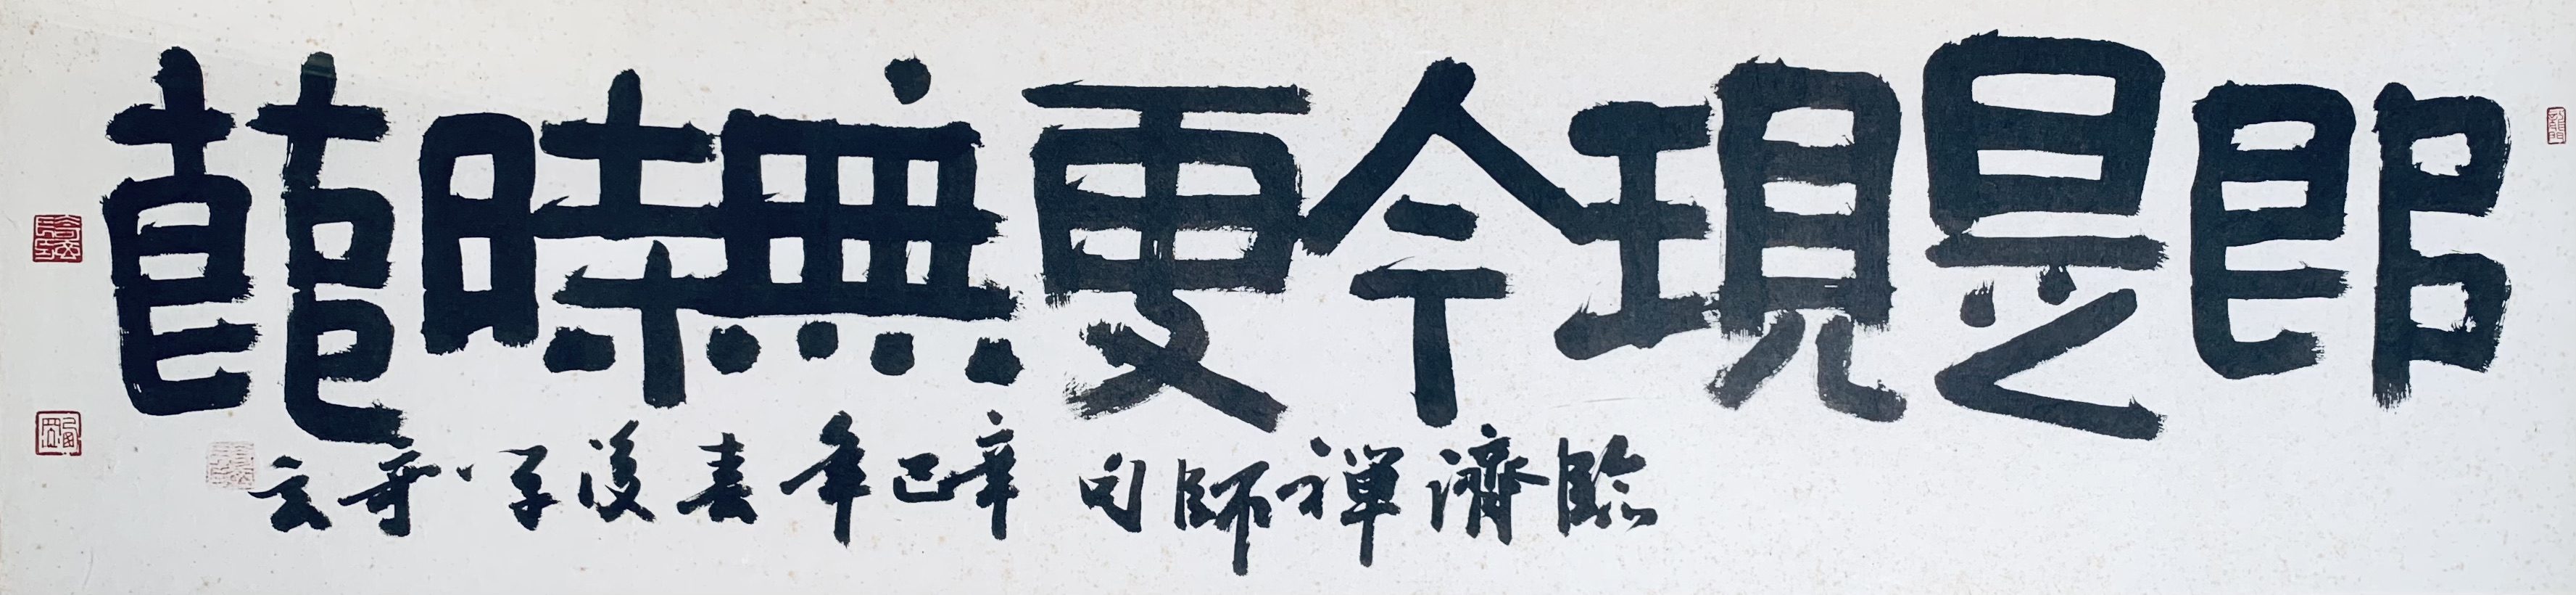 即是現今更無時節
臨濟禪師句 辛巳年春後學奇玄